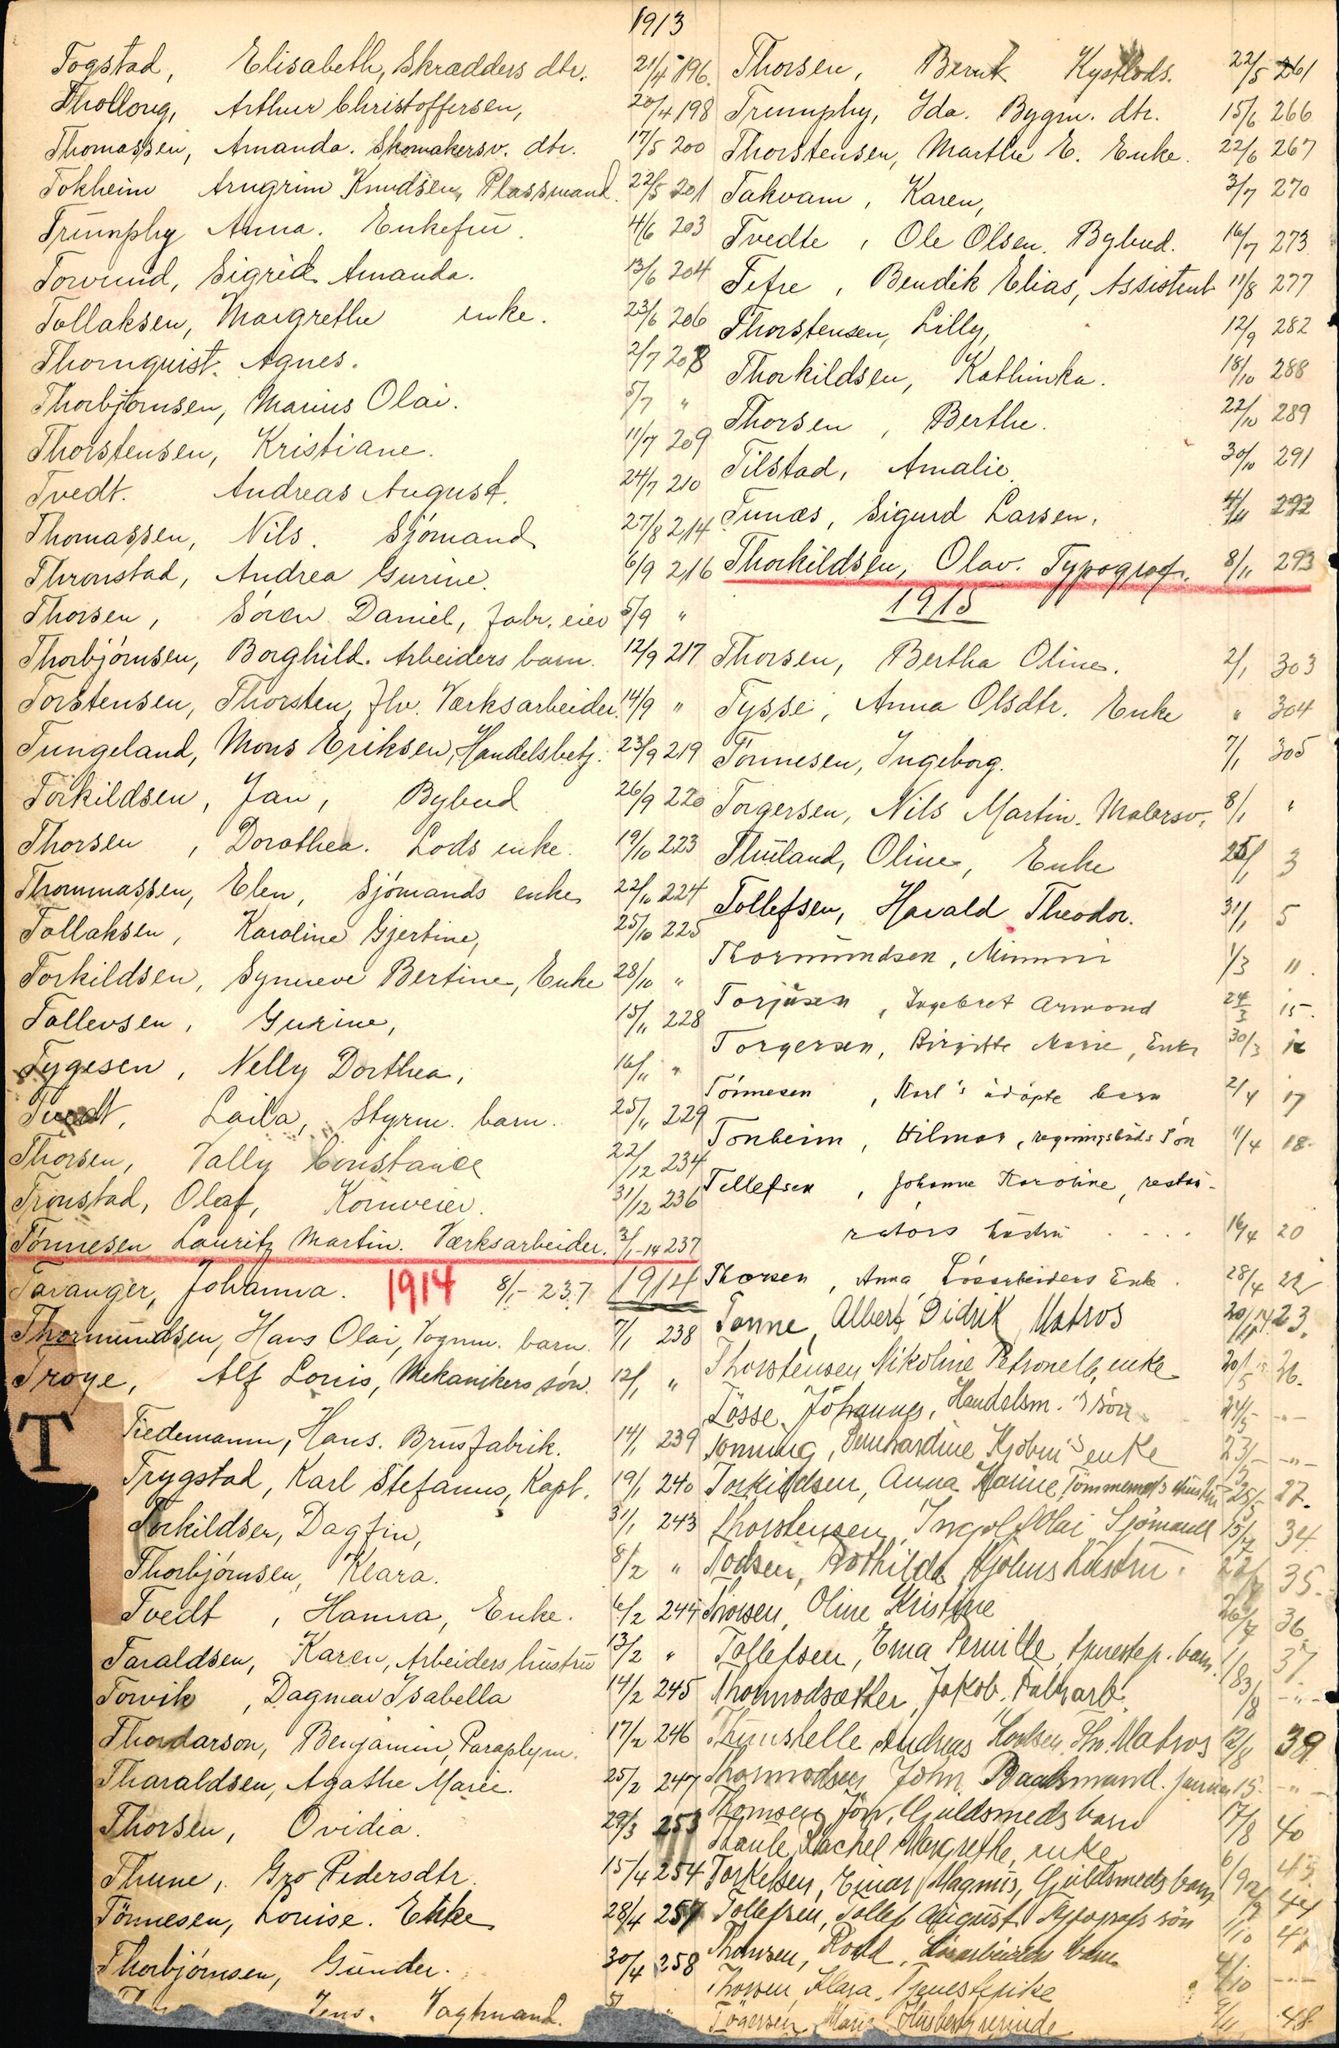 1913
Togstad, Elisabeth, Skrædders dtr. 21/4 196.
Thollong, Arthur Christoffersen, 20/4 198
Thomassen, Amanda. Skomakersv. dtr. 17/5 200
Tokheim Arngrim Knudsen, Plassmand. 22/5 201
Triumphy Anna. Enkefru. 4/6 203
Torvund, Sigrid Amanda. 13/6 204
Tollaksen, Margrethe enke. 23/6 206
Thornquist. Agnes. 2/7 208
Thorbjörnsen, Marius Olai. 5/7 "
Thorstensen, Kristiane. 11/7 209
Tvedt. Andreas August. 24/7 210
Thomassen, Nils. Sjömand 27/8 214
Thronstad, Andrea Gurine. 6/9 216
Thorsen, Sören Daniel, fabr. eier 5/9 "
Thorbjörnsen, Borghild. Arbeiders barn. 12/9 217
Torstensen, Thorsten, fhv. Værksarbeider. 14/9 "
Tungeland, Mons Eriksen, Handelsbetj. 23/9 219
Torkildsen, Jan, Bybud 26/9 220
Thorsen, Dorothea. Lods enke. 19/10 223
Thommassen, Elen, Sjömands enke 22/10 224
Tollaksen, Karoline Gjertine, 25/10 225
Torkildsen, Synneve Bertine, Enke 28/10 "
Tollevsen, Gurine, 15/11 228
Tygesen, Nelly Dorthea, 16/11 "
Tvedt, Laila, Styrm. barn. 25/11 229
Thorsen, Vally Constance 22/12 234
Tronstad, Olaf, Kornveier. 31/12 236
Tönnesen Lauritz Martin. Værksarbeider. 3/1-14 237
Taranger, Johanna. 1914 8/1- 237 1914
Thormundsen, Hans Olai, Vognm. barn. 7/1 238
Troye, Alf Louis, Mekanikers sön. 12/1 "
T
Tiedemann, Hans. Brusfabrik. 14/1 239
Trygstad, Karl Stefanus, Kapt. 19/1 240
Torkildsen, Dagfin, 31/1 243
Thorbjörnsen, Klara. 8/2 "
Tvedt, Hanna, Enke. 6/2 244
Taraldsen, Karen, Arbeiders hustru 13/2 "
Torvik, Dagmar Isabella 14/2 245
Thordarson, Benjamin, Paraplym. 17/2 246
Tharaldsen, Agathe Marie. 25/2 247
Thorsen, Ovidia. 29/3 253
Thune, Gro Pedersdtr. 15/4 254
Tönnesen, Louise. Enke 28/4 257
Thorbjörnsen, Gunder. 30/4 258
Jens. Vagtmand.
Thorsen, Bernt Kystlods. 22/5 261
Triumphy, Ida. Bygm. dtr. 15/6 266
Thorstensen, Marthe E. Enke. 22/6 267
Takvam, Karen, 3/7 270
Tvedte, Ole Olsen. Bybud. 16/7 273
Tefre, Bendik Elias, Assistent 11/8 277
Thorstensen, Lilly, 12/9 282
Thorkildsen, Kathinka. 18/10 288
Thorsen, Berthe. 22/10 289
Tilstad, Amalie. 30/10 291
Tunæs, Sigurd Larsen. 4/11 292
Thorkildsen, Olav. Typograf. 8/11 293
1915
Thorsen, Bertha Oline. 2/1 303
Tysse, Anna Olsdtr. Enke " 304
Tönnesen, Ingeborg. 7/1 305
Torgersen, Nils Martin. Malersv. 8/1 "
Thuland, Oline, Enke 25/1 3
Tollefsen, Harald Theodor. 31/1 5
Thormundsen, Mimmi 1/3 11.
Torjusen, Ingebret Armond 24/3 15.
Torgersen, Birgitte Marie, Enke 30/3 16
Tönnesen, Karl's udöpte barn 2/4 17
Tonheim, Hilmar, regningsbuds sön 11/4 18.
Tellefsen, Johanne Karoline, restau-
ratörs hustru . . . . 16/4 20
Thorsen, Anna Lösarbeiders Enke. 28/4 22
Tonne, Albert Didrik Matros 20/11 14 23.
Thorstensen, Nikoline Petronelle, enke 20/5 26.
Tösse, Johannes, Handelsm.'s sön 24/5 -"-
Tonning, Bernhardine Kjöbm's enke 23/5 -"-
Torkildsen, Anna Marine, Tömmermds hustru 25/5 27.
Thorstensen, Ingolf Olai Sjömand 15/7 34.
Hustru 35.
Thorsen, Oline Kristine 26/7 36
Tollefsen, Erna Pernille, barn. 1/8 37
Thormodsæther, Jakob. Fabr.arb. 3/8 -"-
Andreas Matros 12/8 39
Thormodsen John, Baadsmand. 15. -"-
Thomsen, Guldsmeds barn 17/8 40
Rachel Margrethe, enke 6/9 43
Torkelsen, Einar Magnus, Guldsmeds barn 44
Tollefsen, Tollef August sön 1/10
Thomsen, barn 4/10 -"-
Thorsen, Klara,
Tögersen, Marie 48.